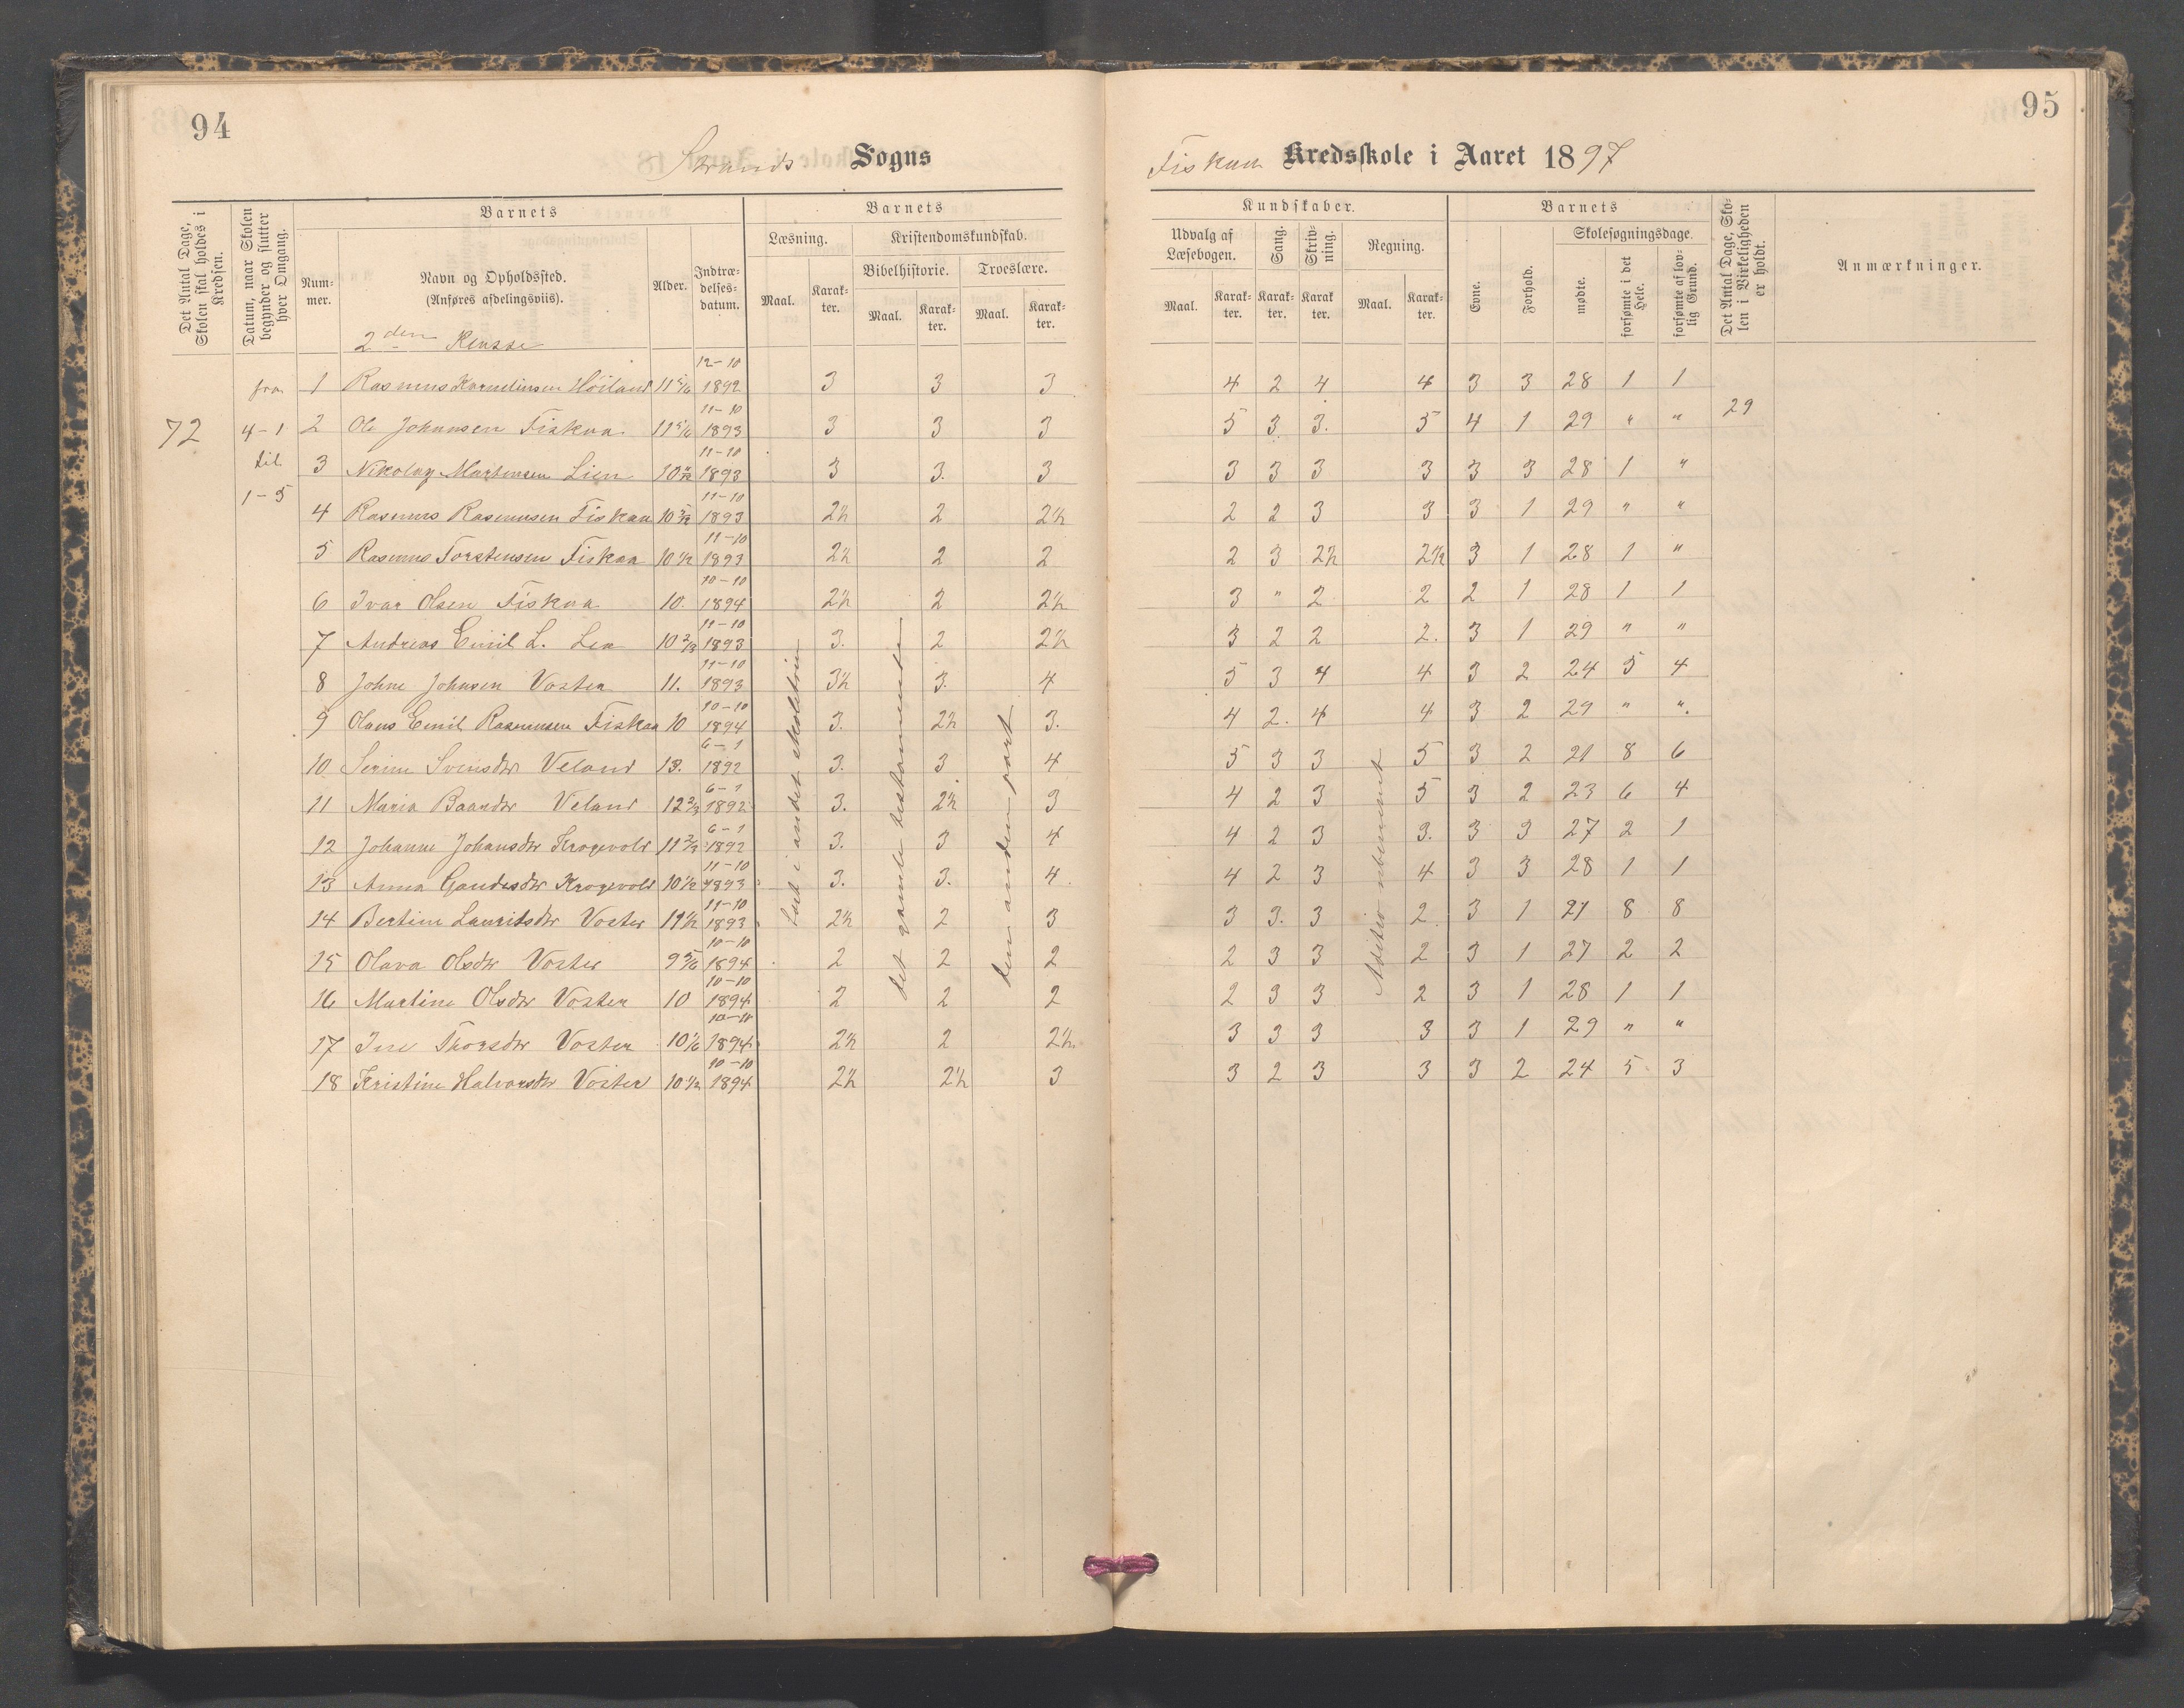 94
Strands Sogns
Det Antal Dage, Skolen skal holdes i Kredsen.
Datum, naar Skolen begynder og slutter hver Omgang.
Barnets
Nummer.
Navn og Opholdssted. (Anføres afdelingsviis).
Alder.
Indtrædelsesdatum.
Barnets
Læsning. Kristendomskundskab.
Bibelhistorie. Troeslære.
Maal. Karakter. Maal. Karakter. Maal. Karakter.
2den Klasse
72
fra
4-1
til
1-5
1 Rasmus Kornelius Høiland 11 5/12 12-10 1892 3 3 3
2 Ole Johnnsen Fiskaa 11 5/12 11-10 1893 3 3 3
3 Nikolay Martensen Lien 11-10 1893 3 3. 3
4 Rasmus Rasmusen Fiskaa 11-10 1893 2½ 2 2½
5 Rasmus Torstensen Fiskaa 10 ½ 11-10 1893 2½ 2 2
6 Ivar Olsen Fiskaa 10. 10-10 1894 2½ 2 2½
7 Andreas Emil L. Lea 10 2/3 11-10 1893 3. 2 2½
8 Johne Johnsen Voster 11. 11-10 1893 3½ 3. 4
9 Olaus Emil Rasmusen Fiskaa 10 10-10 1894 3. 2½ 3.
10 Serine Svensdtr Veland 13. 6-1 1892 3. 3 4
11 Maria Baardtr Veland 12 2/3 6-1 1892 3. 2½ 3
12 Johanne Johansdtr Krogevold 11 2/3 6-1 1892 3. 3 4
13 Anna Gaudesdtr Krogevold 10 ½ 11-10 1893 3. 3. 4.
14 Bertine Lauritsdtr Voster 11 ½ 11-10 1893 2½ 2 3
15 Olava Olsdtr Voster 9 5/6 10-10 1894 2 2 2
16 Martine Olsdtr Voster 10 10-10 1894 2 2 2
17 Ine Thorsdtr Voster 10 1/6 10-10 1894 2½ 2 2½
18 Kristine Halvorsdtr Voster 10 ½ 10-10 1894 2½ 2½ 3
Læst i andet skoletrin
det gamle testamente
den anden part
95
Fiskaa Kredsskole i Aaret 1897
Kundskaber.
Udvalg af Læsebogen.
Sang.
Skrivning.
Regning.
Maal. Karakter. Karakter. Karakter. Maal. Karakter.
Barnets
Evne.
Forhold.
Skolesøgningsdage.
mødte.
forsømte i det Hele.
forsømte af lovlig Grund.
Det Antal Dage, Skolen i Virkeligheden er holdt.
Anmærkninger.
4 2 4 4 3 3 28 1 1
29
5 3 3. 5 4 1 29 " "
3 3 3 3 3 3 28 1 "
2 2 3 3 3 1 29 " "
2 3 2½ 2½ 3 1 28 1 "
3 " 2 2 2 1 28 1 1
3 2 2 2. 3 1 29 " "
5 3 4 4 3 2 24 5 4
4 2. 4 4 3 2 29 " ".
5 3 3 5 3 2 21 8 6
4 2 3 5 3 2 23 6 4
4 2 3 3. 3 3 27 2 1
4 2 3 4 3 3 28 1 1
3 3. 3 2 3 1 21 8 8
2 3 3 2 3 1 27 2 2
2 3 3 2 3 1 28 1 1
3 3 3 3 3 1 29 " "
3 2 3 3 3 2 24 5 3